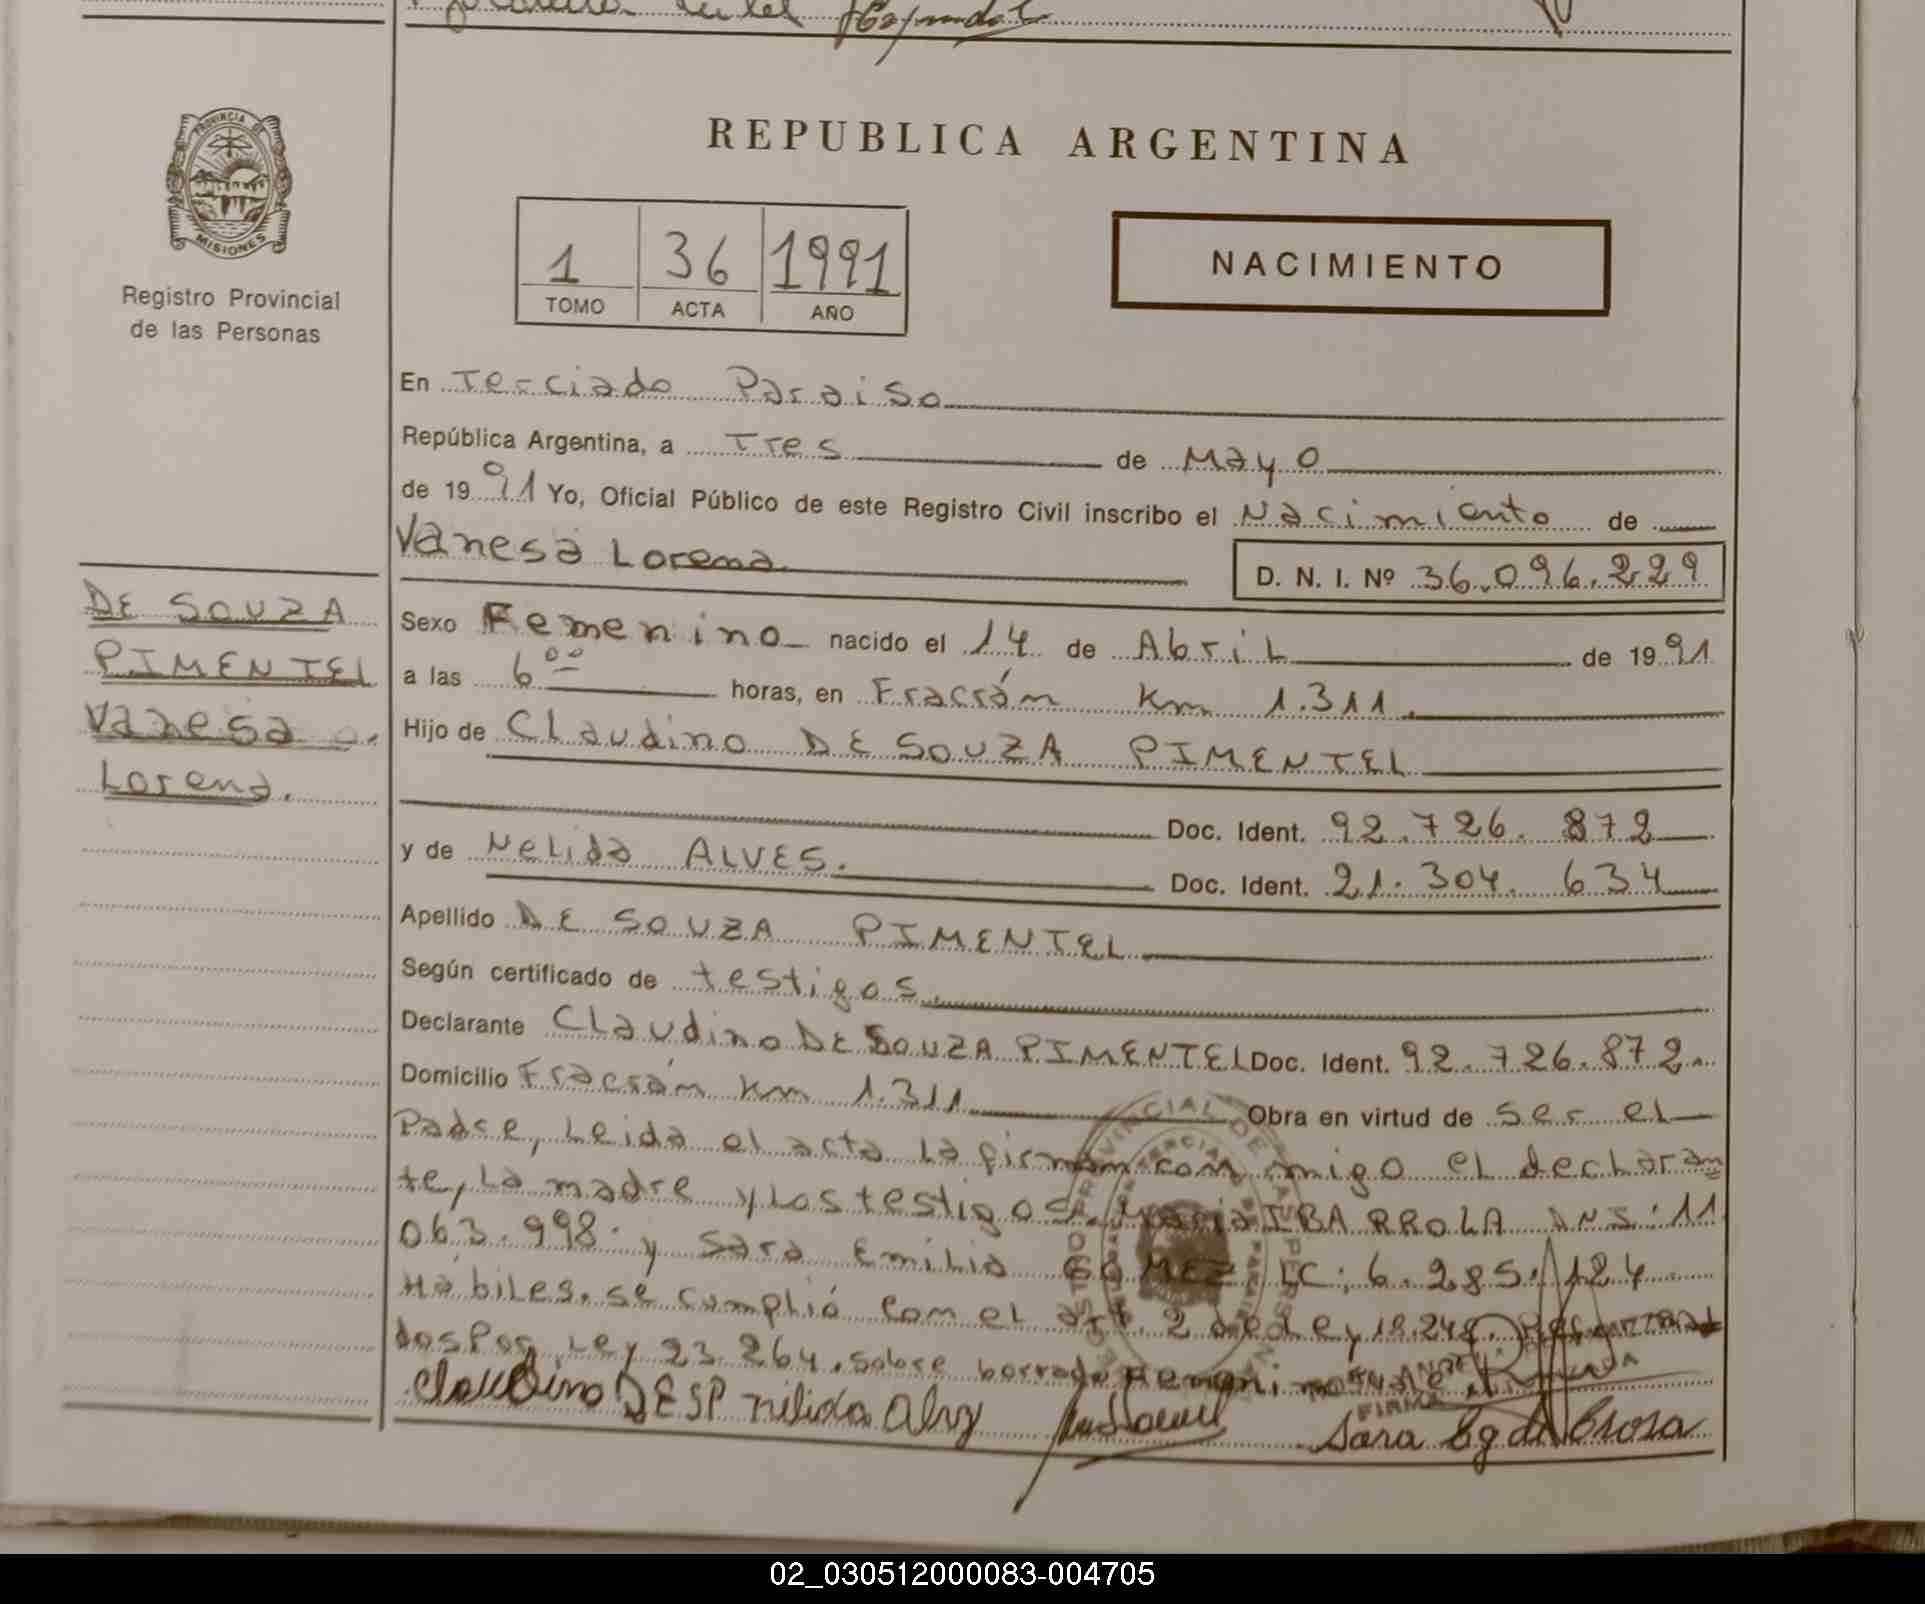 PROVINCIA DE
MISIONES
Registro Provincial
de las Personas
REPUBLICA ARGENTINA
1 36 1991
TOMO ACTA AÑO
NACIMIENTO
En Terciado Paraiso
República Argentina, a Tres de Mayo
de 19 91 Yo, Oficial Público de este Registro Civil inscribo el Nacimiento de
Vanesa Lorena
D. N. I. Nº 36.096.229
DE SOUZA
PIMENTEL
Vanesa
Lorena.
Sexo Femenino nacido el 14 de Abril de 19 91
a las 6 00 horas, en Fracrán Km 1.311.
Hijo de Claudino DE SOUZA PIMENTEL
Doc. Ident. 92.726.872
y de Nelida ALVES.
Doc. Ident. 21.304.634
Apellido DE SOUZA PIMENTEL
Según certificado de testigos.
Declarante Claudino DE SOUZA PIMENTEL Doc. Ident. 92.726.872.
Domicilio Fracrán Km 1.311 Obra en virtud de ser el
Padre, Leida el acta La firman conmigo el declaran
te, La madre y Los testigos. Maria IBARROLA DNI: 11
063.998. y Sara Emilia GOMEZ LC: 6.285.124
Hábiles. se cumplió con el art. 2 de Ley 18.248.
dos Por Ley 23.264. sobre borrado Femenino vale
FIRMA
Claudino DESP nilida Alvz
Sara
02_030512000083-004705